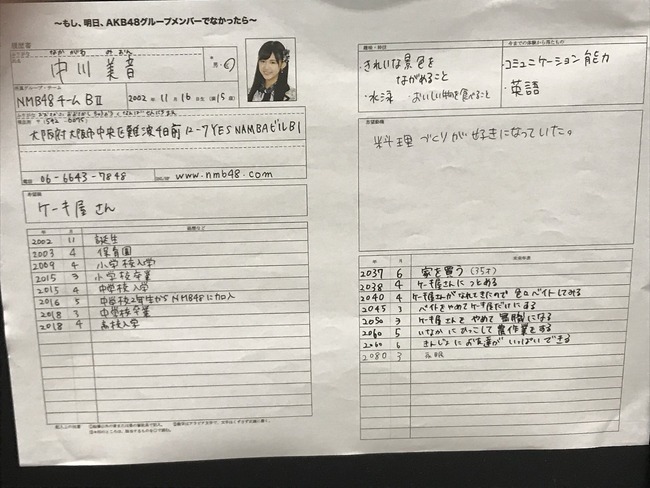 ～もし、明日、AKB48グループメンバーでなかったら～
履歴書
なかがわ みおん
中川 美音
男・女
所属グループ・チーム
NMB48 チームBⅡ
2002 年 11 月 16 日生 (満 15 歳)
大阪府大阪市中央区難波千日前12-7 YES NAMBAビルB1
電話
06-6643-7848
www.nmb48.com
希望職
ケーキ屋さん
2002 11 誕生
2003 4 保育園
2009 4 小学校入学
2015 3 小学校卒業
2015 4 中学校入学
2016 5 中学校2年生からNMB48に加入
2018 3 中学校卒業
2018 4 高校入学
趣味・特技
・きれいな景色を
ながめること
・水泳 ・おいしい物を食べること
今までの体験から得たもの
・コミュニケーション能力
・英語
志望動機
料理づくりが好きになっていた。
年 月
2037 6 家を買う(35才)
2038 4 ケーキ屋さんにつとめる
2040 4 ケーキ屋さんがなれてきたので色々バイトしてみる
2045 3 バイトをやめてケーキ屋だけにする
2050 3 ケーキ屋さんをやめて冒険になる
2060 5 いなかにひっこして農作業をする
2060 6 きんじょにお友達がいっぱいできる
2080 3 永眠